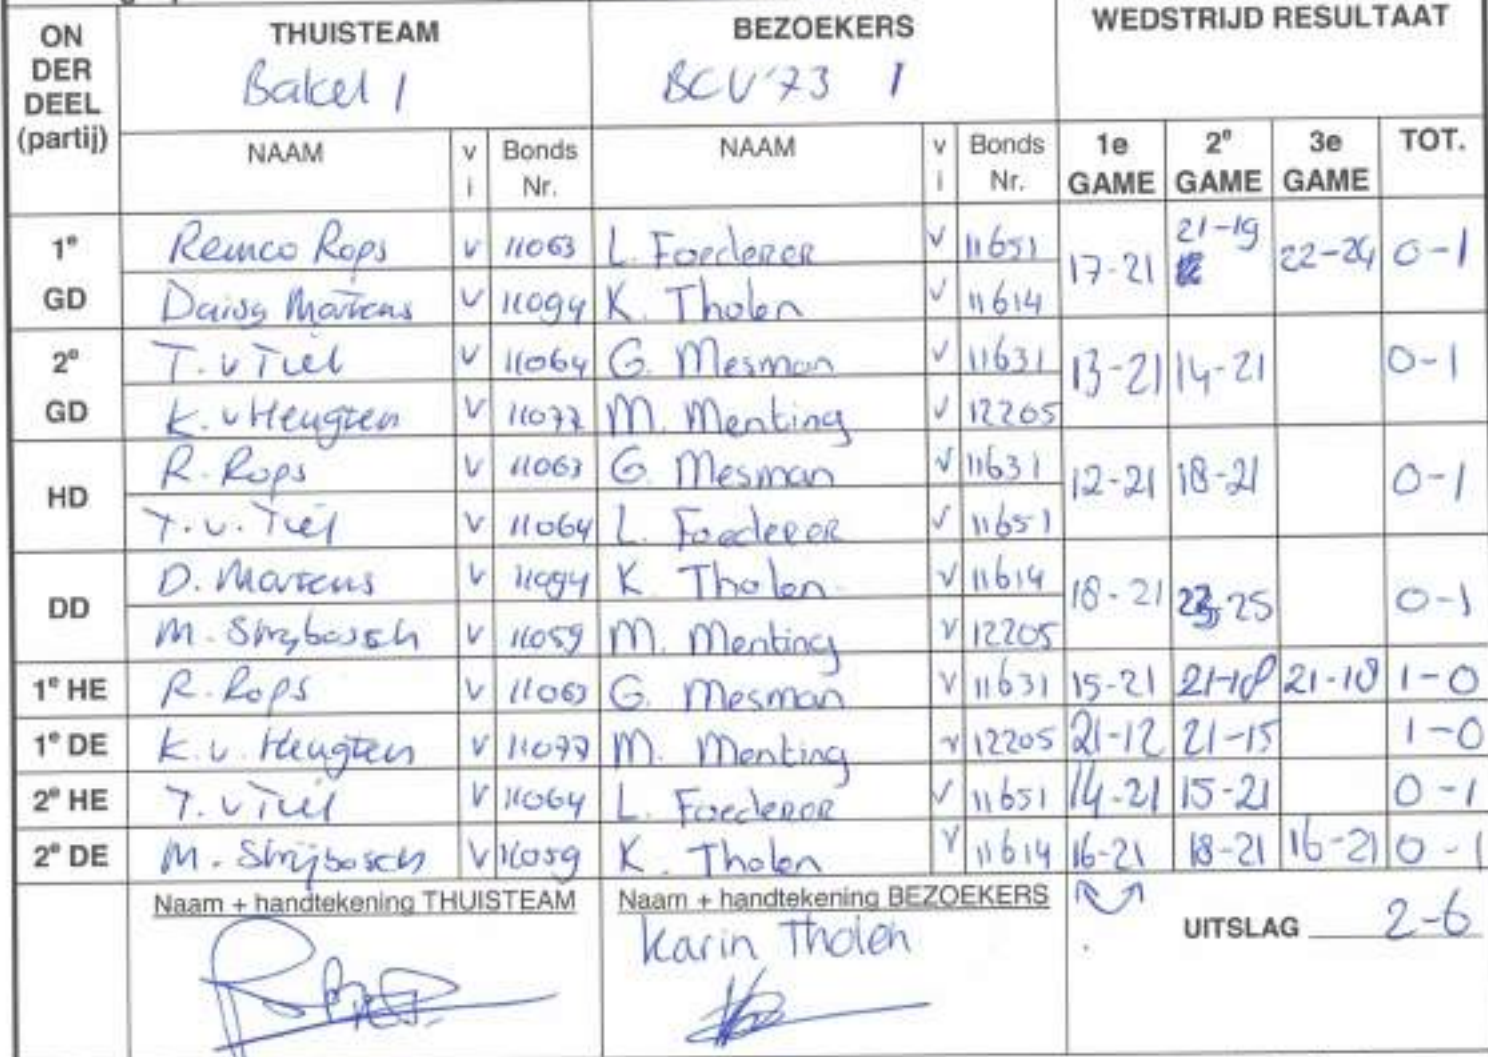 ON DER DEEL (partij) THUISTEAM BEZOEKERS WEDSTRIJD RESULTAAT
Bakel 1 BCV'73 1
NAAM v i Bonds Nr. NAAM v i Bonds Nr. 1e GAME 2e GAME 3e GAME TOT.
1e GD Remco Rops v 11063 L. Foederer v 11651 17-21 21-19 22-24 0-1
Daisy Martens v 11094 K. Tholen v 11614
2e GD T. v Tiel v 11064 G. Mesman v 11631 13-21 14-21 0-1
K. v Heugten v 11077 M. Menting v 12205
HD R. Rops v 11063 G. Mesman v 11631 12-21 18-21 0-1
T. v. Tiel v 11064 L. Foederer v 11651
DD D. Martens v 11094 K. Tholen v 11614 18-21 23-25 0-1
M. Strijbosch v 11059 M. Menting v 12205
1e HE R. Rops v 11063 G. Mesman v 11631 15-21 21-18 21-18 1-0
1e DE K. v. Heugten v 11077 M. Menting v 12205 21-12 21-15 1-0
2e HE T. v Tiel v 11064 L. Foederer v 11651 14-21 15-21 0-1
2e DE M. Strijbosch v 11059 K. Tholen v 11614 16-21 18-21 16-21 0-1
Naam + handtekening THUISTEAM Naam + handtekening BEZOEKERS
Karin Tholen UITSLAG 2-6